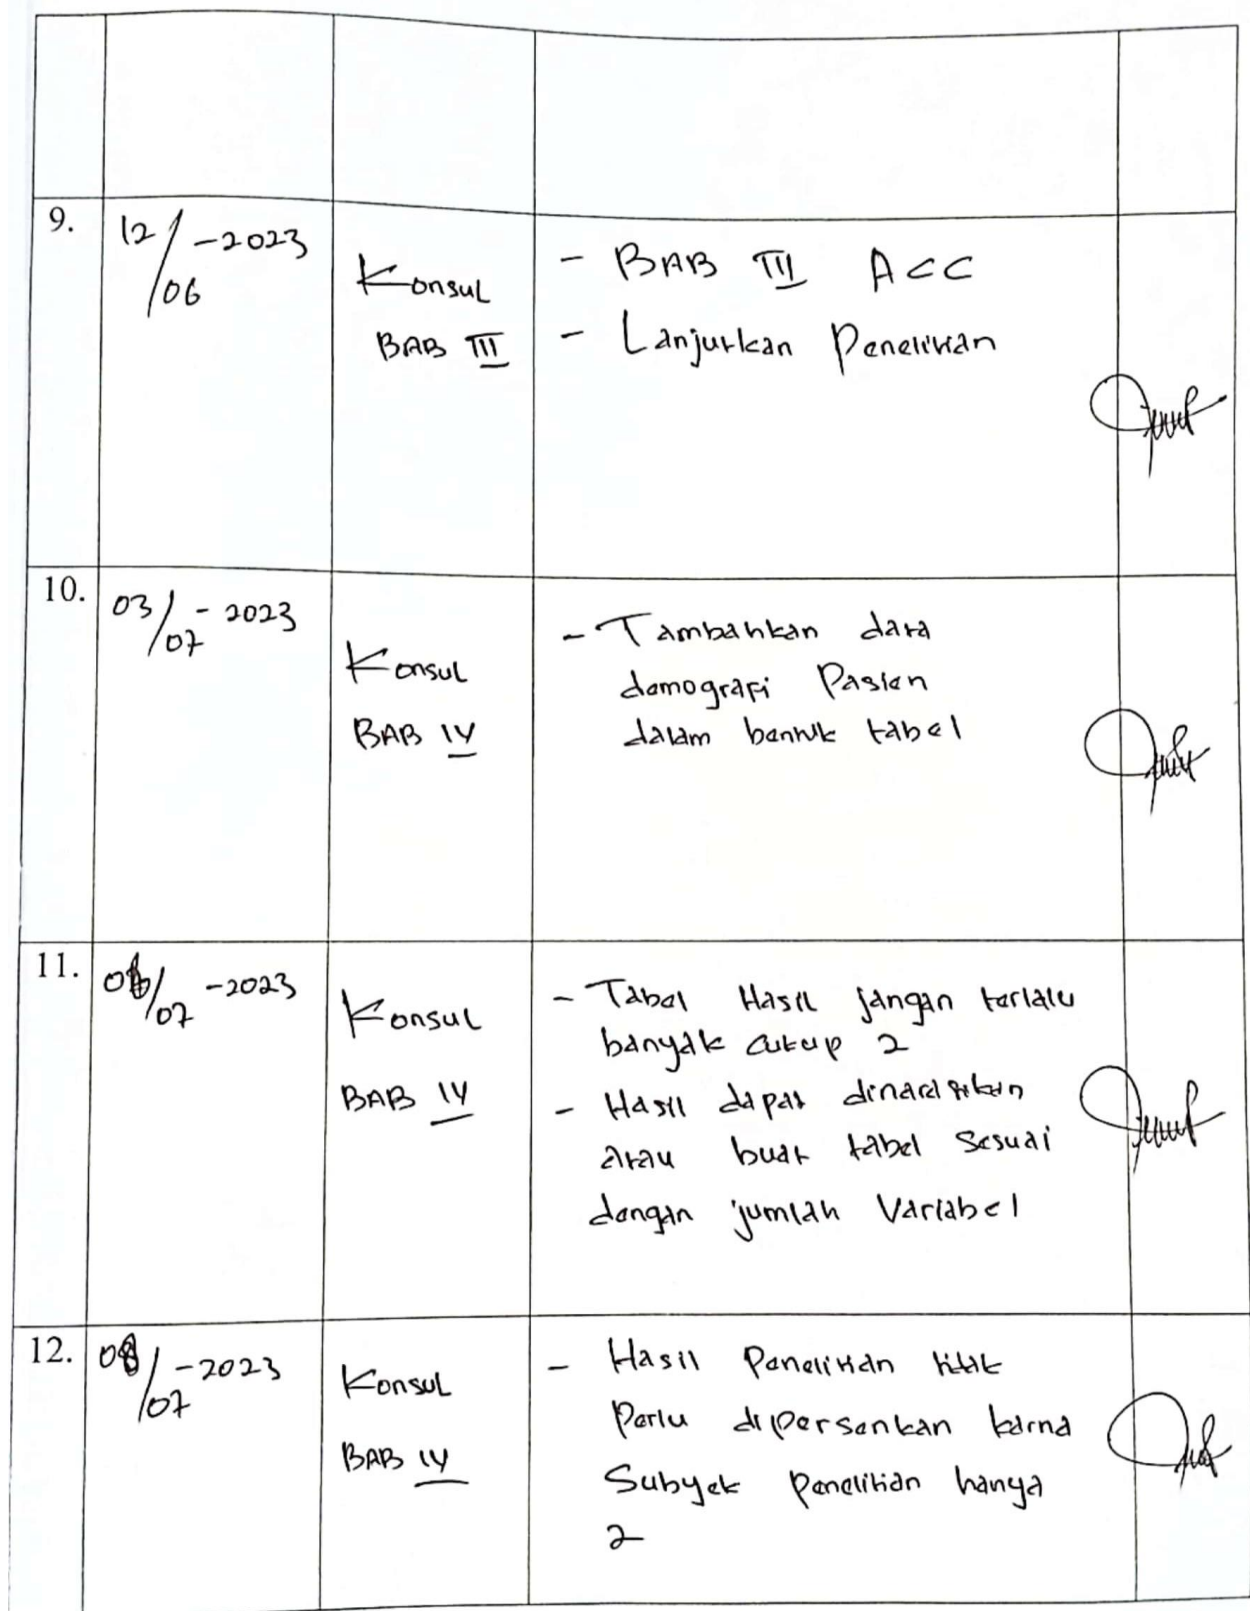 9.
12/06 -2023
Konsul
BAB III
- BAB III ACC
- Lanjutkan Penelitian
10.
03/07 - 2023
Konsul
BAB IV
- Tambahkan data
demografi Pasien
dalam bentuk tabel
11.
/07 -2023
Konsul
BAB IV
- Tabel Hasil jangan terlalu
banyak cukup 2
- Hasil dapat dinarasikan
atau buat tabel sesuai
dengan jumlah Variabel
12.
08/07 -2023
Konsul
BAB IV
- Hasil Penelitian
Perlu dipersenkan karna
Subyek penelitian hanya
2